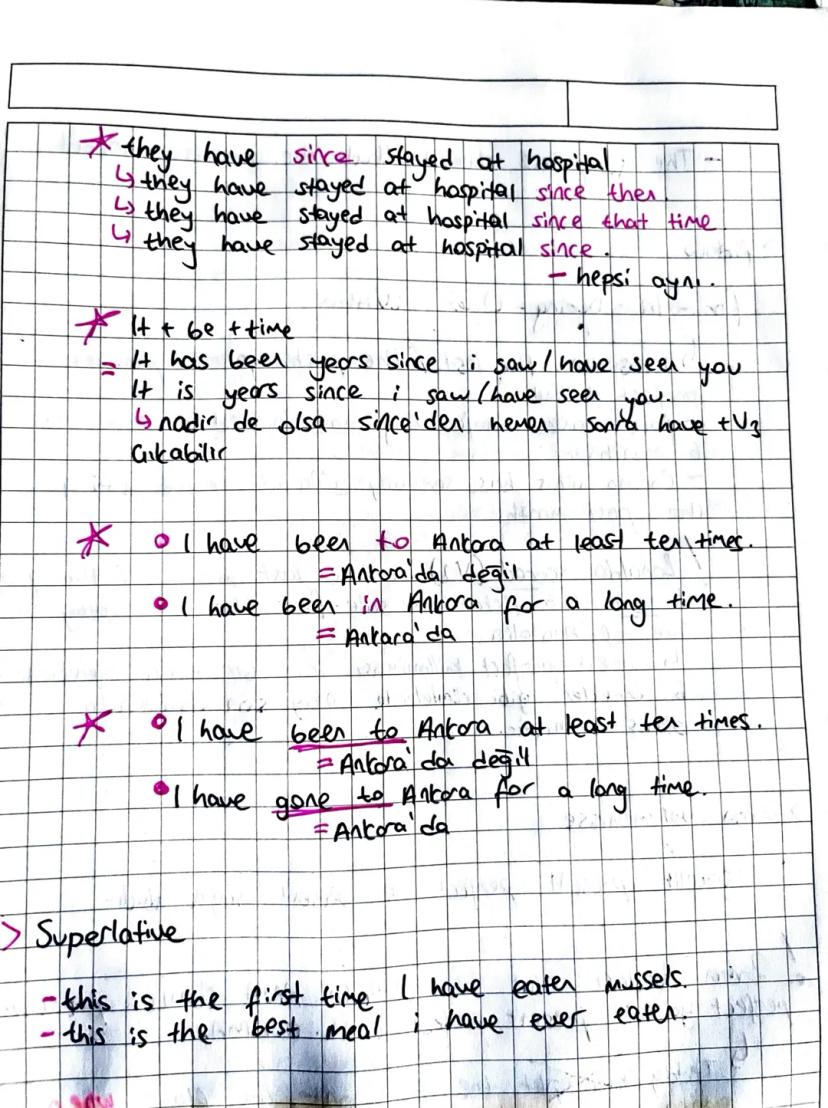 * they have since stayed at hospital
↳ they have stayed at hospital since then.
↳ they have stayed at hospital since that time
↳ they have stayed at hospital since.
- hepsi aynı.
* It + be + time
= It has been years since i saw / have seen you
It is years since i saw / have seen you.
↳ nadir de olsa since'den hemen sonra have + V3
çıkabilir
* • I have been to Ankara at least ten times.
= Ankara'da değil
• I have been in Ankara for a long time.
= Ankara'da
* • I have been to Ankara at least ten times.
= Ankara'da değil
• I have gone to Ankara for a long time.
= Ankara'da
> Superlative
- this is the first time I have eaten mussels.
- this is the best meal i have ever eaten.